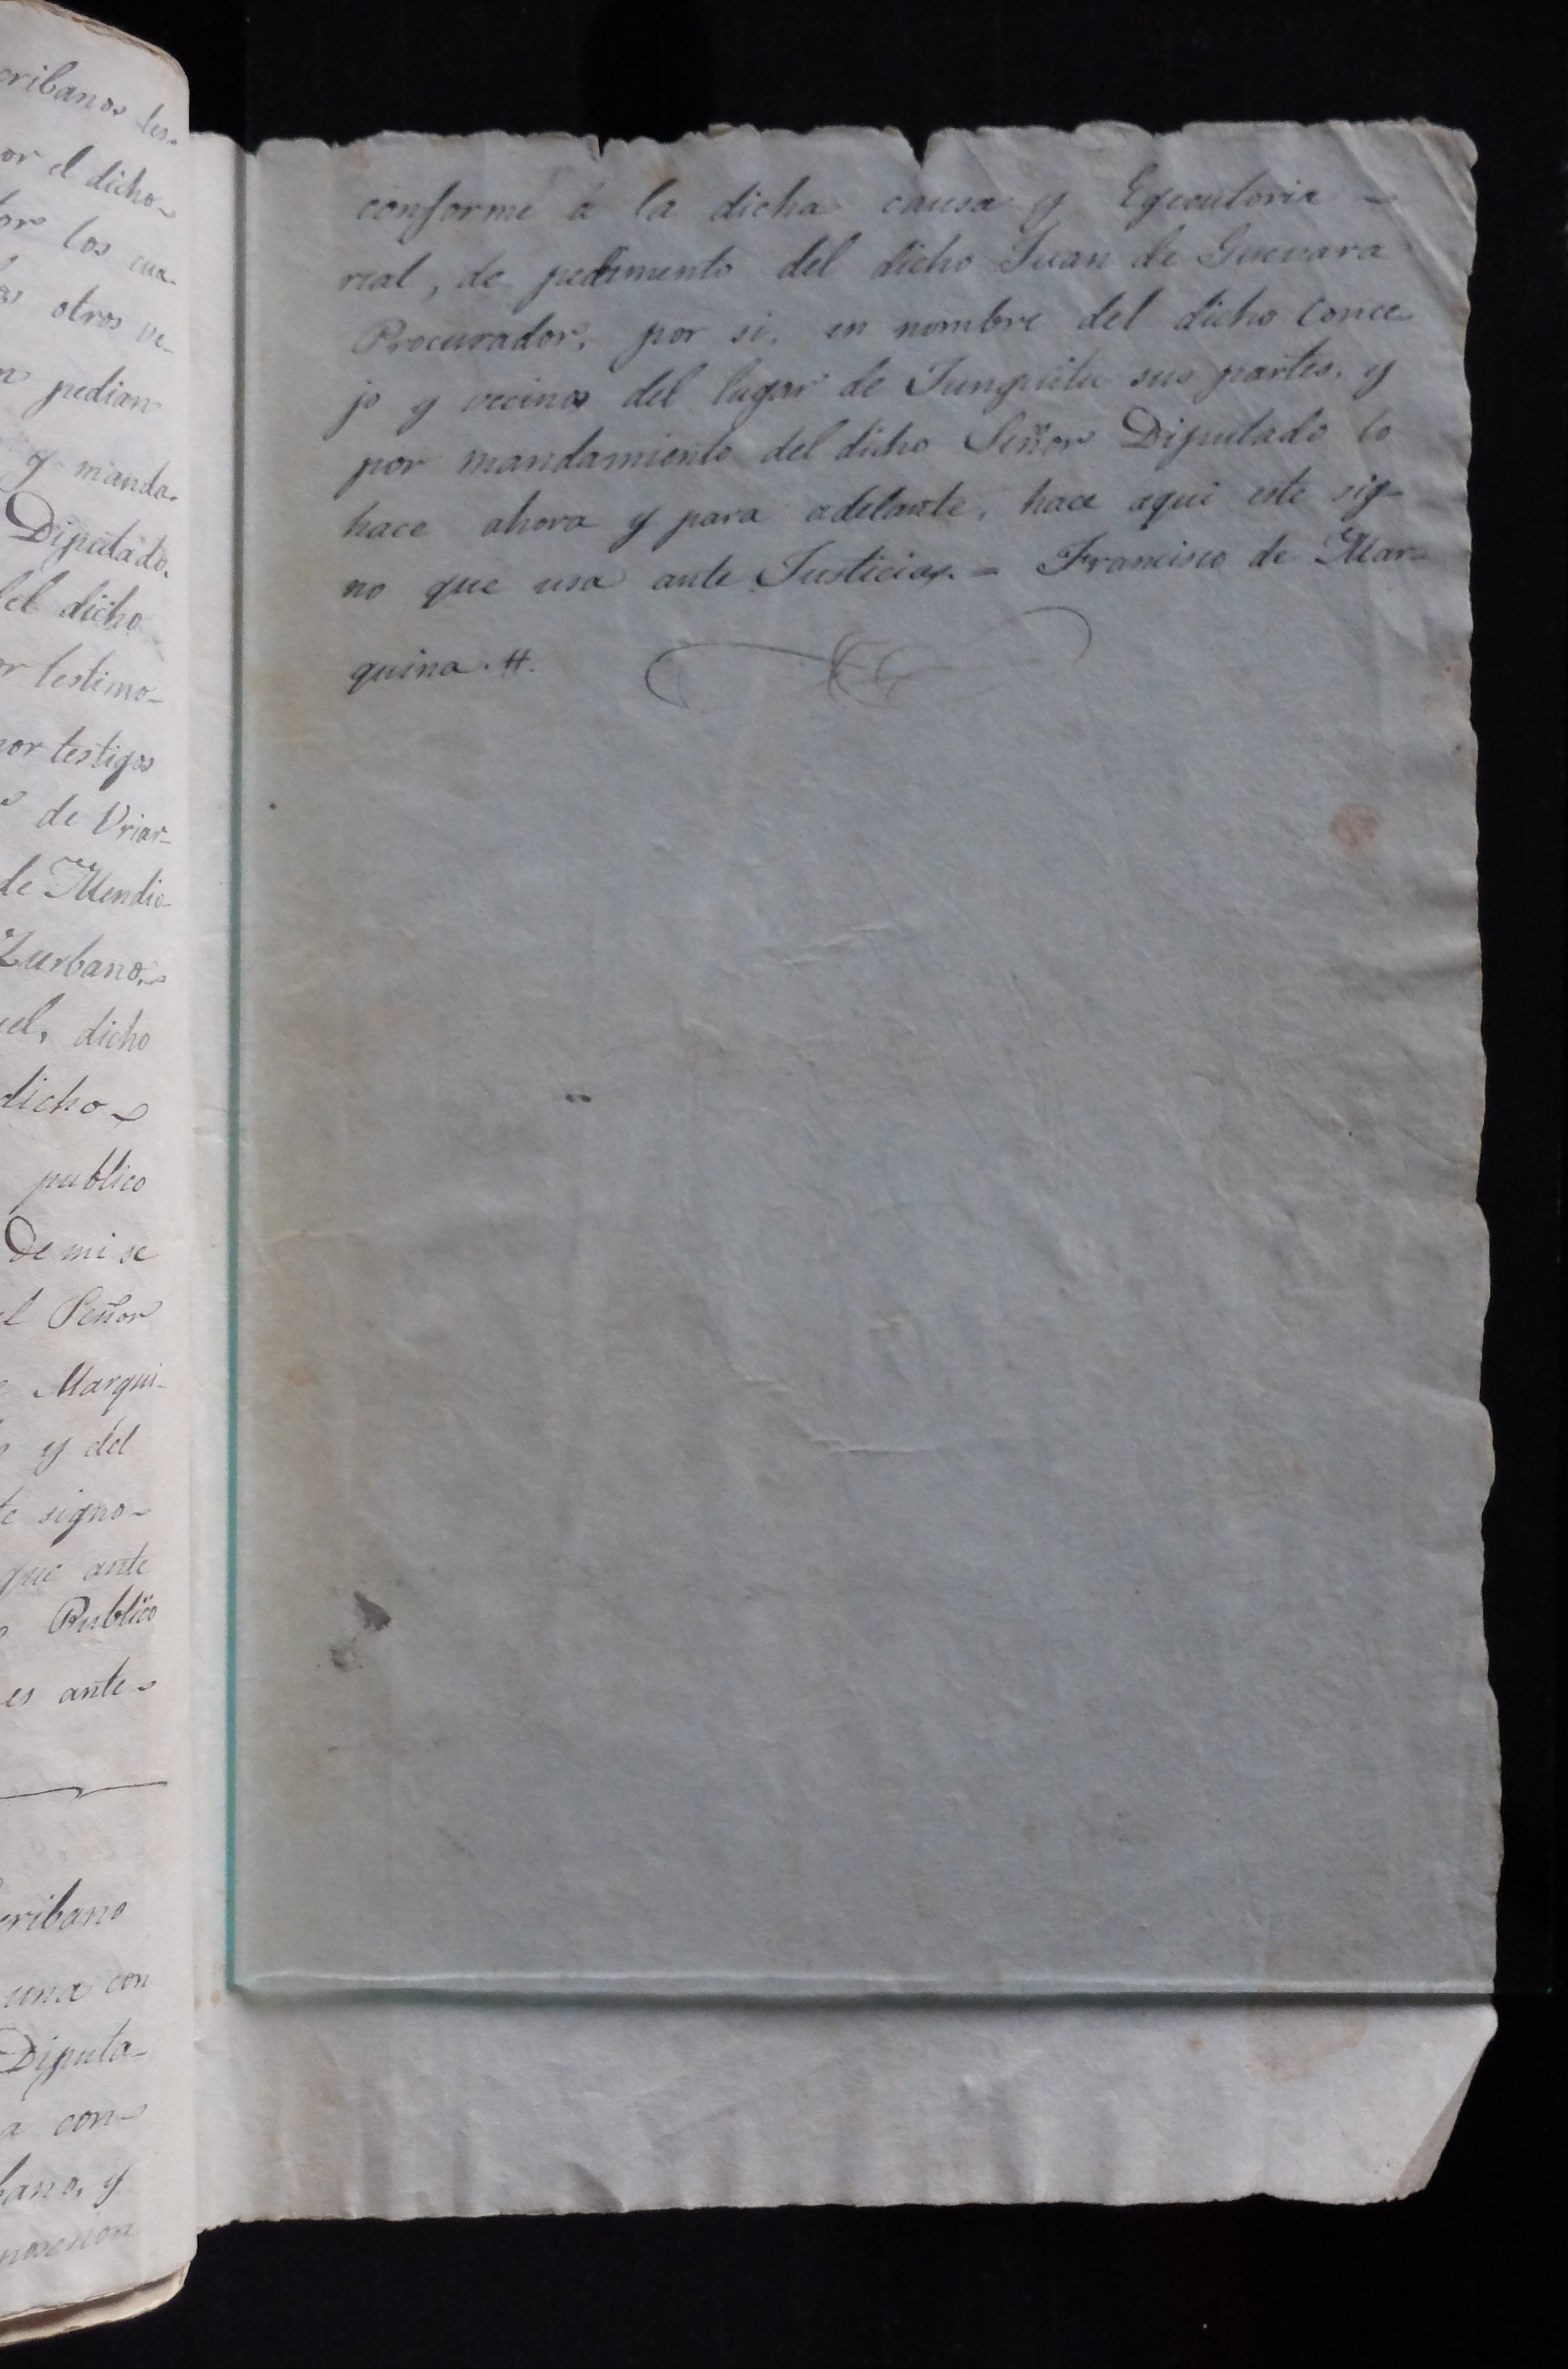 cribanos tes-
or el dicho
los cua-
otros ve-
pedian
y manda-
Diputado.
del dicho
or testimo-
por testigos
de Vriar-
de Mendio-
Zurbano.
el, dicho
dicho
publico
De mi se
el Señor
Marqui-
y del
te signo-
que ante
Publico
es ante-
cribano
una con
Diputa-
a con-
bano, y
conforme á la dicha causa y Egecutoria -
real, de pedimento del dicho Juan de Guevara
Procurador, por si, en nombre del dicho conce
jo y vecinos del lugar de Junguitu sus partes, y
por mandamiento del dicho Señor Diputado lo
hace ahora y para adelante, hace aqui este sig-
no que usa ante Justicias. = Francisco de Mar-
quina. #.